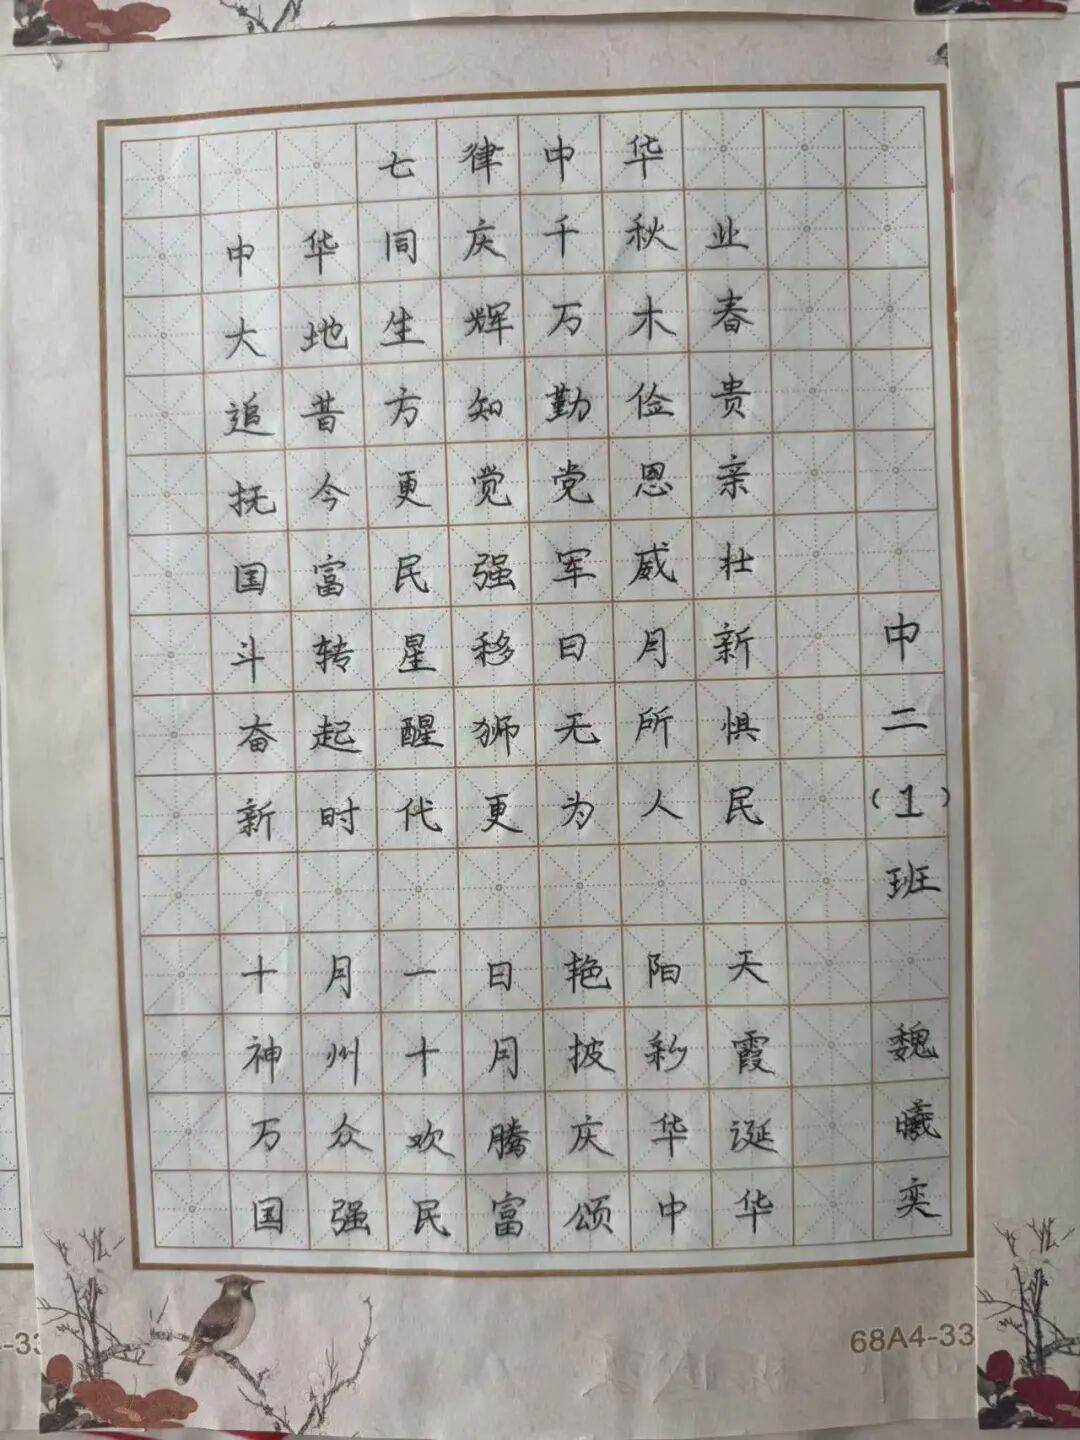 七律中华
中华同庆千秋业
大地生辉万木春
追昔方知勤俭贵
抚今更觉党恩亲
国富民强军威壮
斗转星移日月新
奋起醒狮无所惧
新时代更为人民
十月一日艳阳天
神州十月披彩霞
万众欢腾庆华诞
国强民富颂中华
申二（1）班 魏曦奕
68A4-33